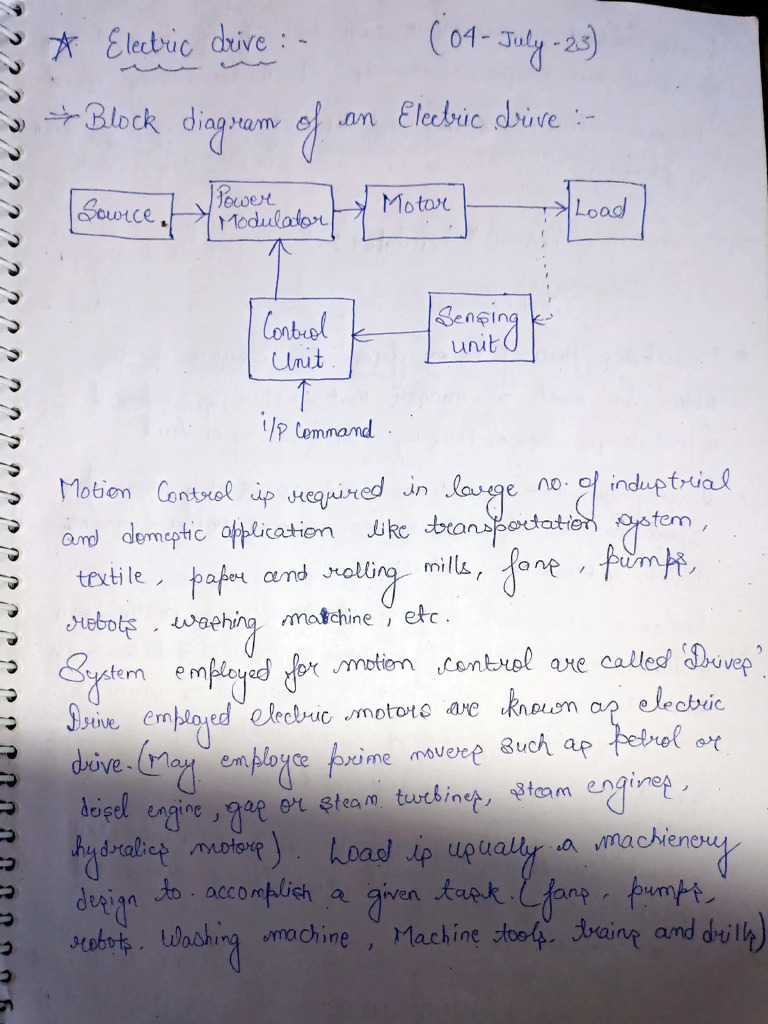 ☆ Electric drive :- (04-July-23)
⇒ Block diagram of an Electric drive :-
Source
Power
Modulator
Motor
Load
Control
Unit
Sensing
unit
i/p Command
Motion Control is required in large no. of industrial
and domestic application like transportation system,
textile, paper and rolling mills, fans, pumps,
robots, washing matchine, etc.
System employed for motion control are called 'Drives'.
Drive employed electric motors are known as electric
drive. (May employee prime movers such as petrol or
deisel engine, gas or steam turbines, steam engines,
hydralics motors). Load is usually a machienery
design to accomplish a given task. (fans, pumps,
robots. Washing machine, Machine tools. trains and drills)